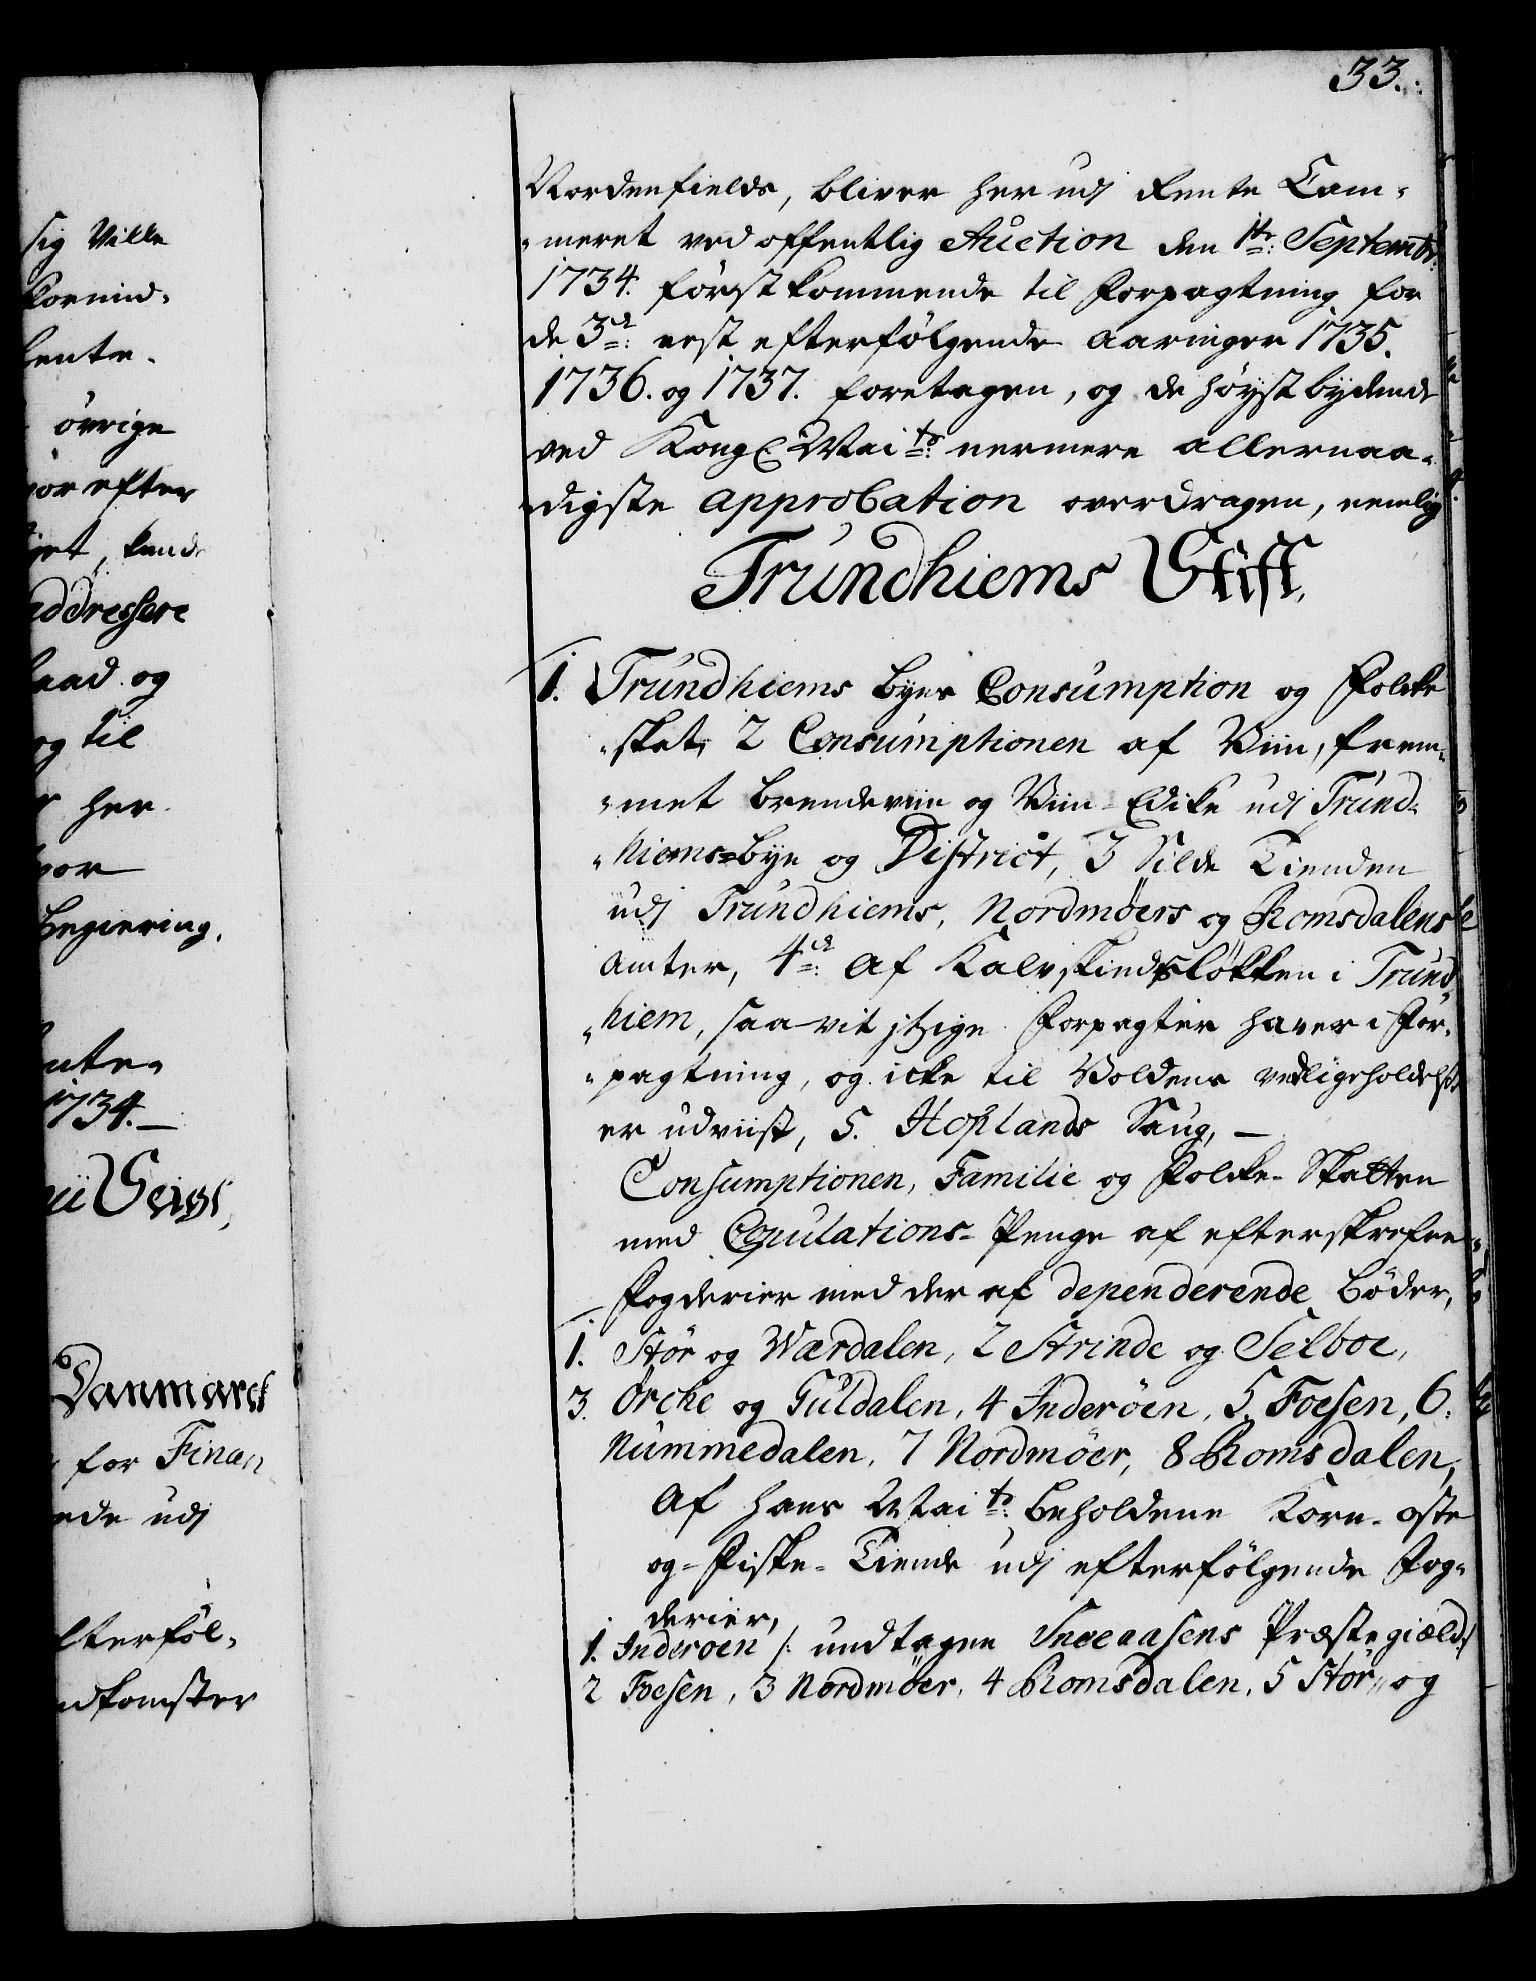 33.
Nordenfields, bliver her udj Rente Cam-
-meret ved offentlig Auction den 1te: Septembr:
1734. først kommende til Forpagtning for
de 3de: nest efterfølgende Aaringer 1735.
1736. og 1737. foretagen, og de høystbydende
ved Kongl Mai ts: nermere allernaa-
-digste approbation overdragen, nemlig
Trundhiems Stift.
1. Trundhiems Byes Consumption og Folcke
-skat, 2 Consumptionen af Viin, frem-
-met Brendeviin og Viin-Edike udj Trund-
-hiems-Bye og District, 3 Silde Tienden
udj Trundhiems, Nordmøers og Romsdalens
Amter, 4de: Af Kalvskindsløkken i Trund-
-hiem, saa vit itzige Forpagter haver i For-
-pagtning, og icke til Voldens vedligeholdelse
er udviist, 5. Hoplands Saug, —
Consumptionen, Familie og Folcke-Skatten
med Copulations-Penge af efterskrefne
Fogderier med der af dependerende Bøder,
1. Stør og Wærdalen, 2 Strinde og Selboe,
3. Ørcke og Guldalen, 4 Inderøen, 5. Foesen, 6.
Nummedalen, 7 Nordmøer, 8 Romsdalen,
Af Hans Mai ts: Beholdene Korn- oste
og-Fiske-Tiende udj efterfølgende Fog-
derier,
1. Inderøen /: undtagen Sneeaasens Præstegiæld:/
2 Foesen, 3 Nordmøer, 4 Romsdalen, 5 Stør,, og
sig Ville
rente-
øvrige
efter
addressere
og
og til
her
Begiering,
1734. —
Danmarck
for Finan
udj
efterføl-